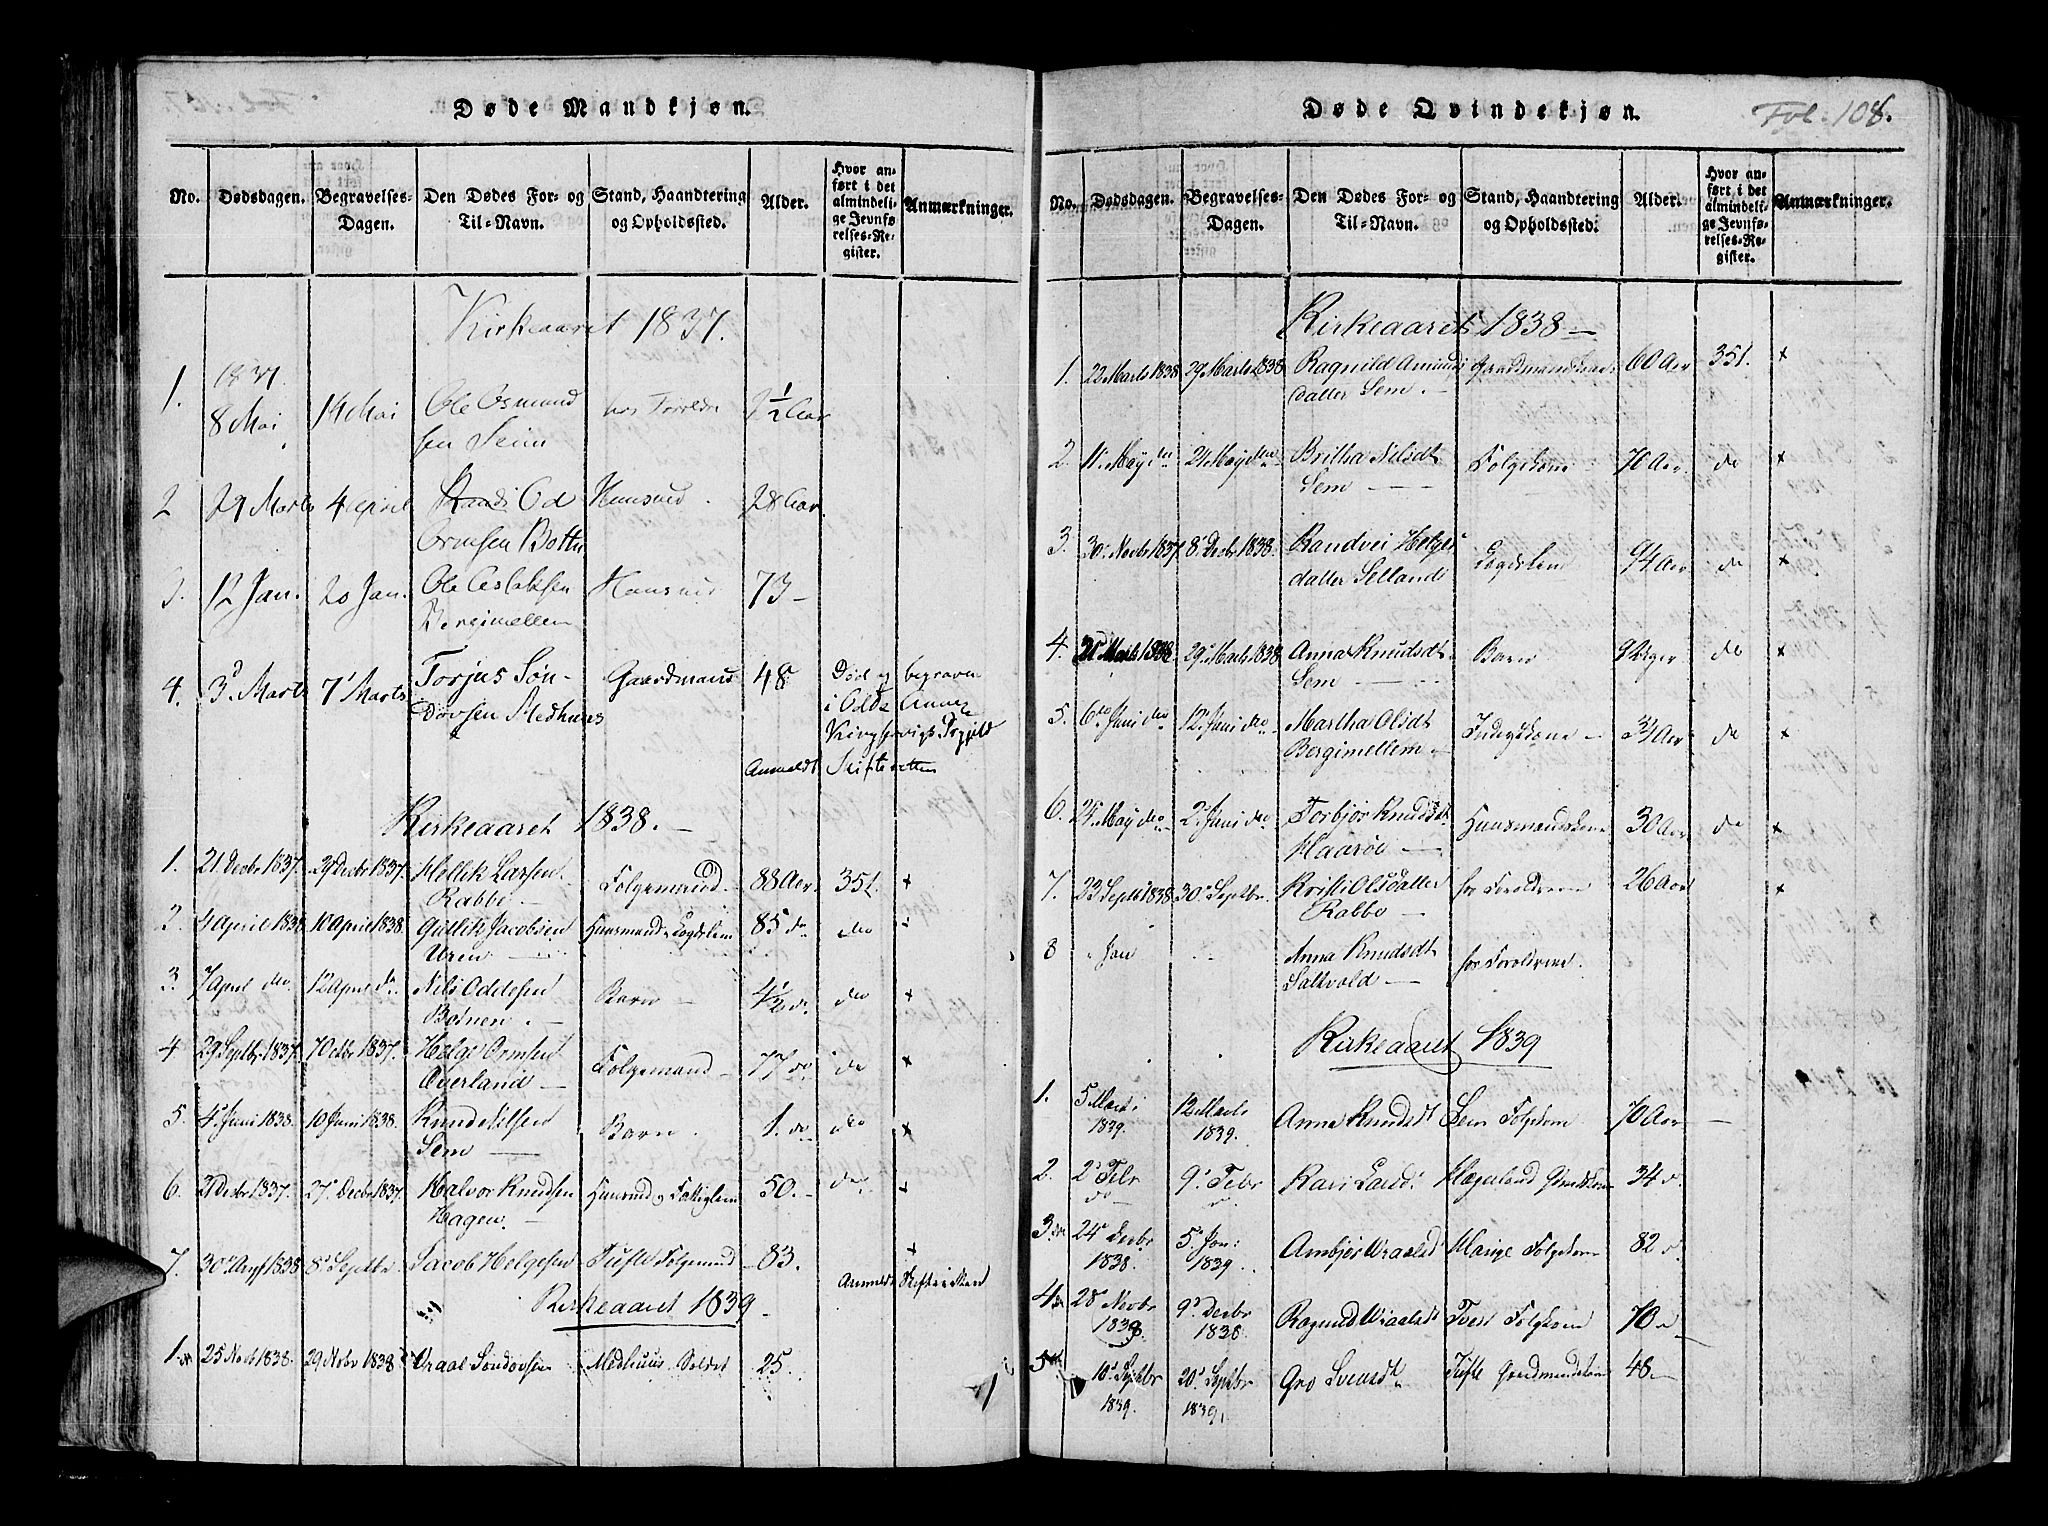 Døde Mandkjøn.
No. Dødsdagen. Begravelses-Dagen. Den Dødes For- og Til-Navn. Stand, Haandtering og Opholdssted. Alder. Hvor anført i det almindelige Jevnførelses-Register. Anmærkninger.
Kirkeaaret 1837.
1. 1837. 8 Mai 14 Mai Ole Osmundsen Seim hos Forældre 2½ Aar
2 29 Marts 4 April Od Ormsen Huusmd. 28 Aar.
3. 12 Jan. 20 Jan. Ole Aslaksen Bergimellem Huusmd 73
4. 3d Marts 7' Marts Torjus Søndovsen Medhuus Gaardmand 48 Død og begraven i Odda Annex Kinghservigs Prgjeld
Anmeldt Skifteretten
Kirkeaaret 1838.
1. 21 Decbr 1837. 29 Decbr 1837. Hellik Larsen Rabbe Folgemand. 88 Aar. 351. +
2. 4 April 1838 10 April 1838. Gullik Jacobsen Uren Huusmand Lægdslem 85 do do +
3. 7 April do. 12 April do. Nils Oddesen Botnen. Barn 4½ do. do +
4 29 Septbr. 1837. 7 Octbr 1837. Helge Ormsen Overland Folgemand 77 do do +
5. 4 Juni 1838. 10 Juni 1838. Knud Nilsen Sem Barn. 1. do do +
6. Decbr 1837. 27' Decbr 1837. Halvor Knudsen Hagen. Huusmd og Fattiglem 50. do +
7. 30 Augt 1838 8' Septbr Jacob Helgesen Tufte Folgemand 83. +
Anmeldt Skifteretten
Kirkeaaret 1839.
1. 25 Novb 1838. 29 Nobr 1838 Vraal Sondovsen Medhuus Soldat 25.
Døde Qvindekjøn.
Fol. 108.
No. Dødsdagen. Begravelses-Dagen. Den Dødes For- og Til-Navn. Stand, Haandtering og Opholdssted. Alder. Hvor anført i det almindelige Jevnførelses-Register. Anmærkninger.
Kirkeaaret 1838
1. 22 Marts 1838 29 Marts 1838 Ragnild Amundsdatter Sem. 60 Aar 351. +
2. 11 May do 24 May do Britha Nilsdt Sem Folgekone 70 Aar. do +
3. 30' Novbr 1837 8 Decbr 1838. Randvei Helgesdatter Selland Lægdslem 94 Aar do +
4. Marts 1838. 29' Marts 1838 Anna Knudsdt. Sem Barn 9 Uger do +
5. 6te Juni do 12' Juni do Martha Olsdt Bergimellem Aar do +
6. May do 2' Juni do Torbjør Knudsdt Haarøe Huusmandskone 30 Aar do +
7. 23 Septb 1838 30' Septbr. Kristi Olsdatter Rabbe hos Forældrene 26 Aar +
8 " Jan Anna Knudsdt Saltvold hos Forældrene.
Kirkeaaret 1839
1. 5 Marts 1839. 12 Marts 1839. Anna Knudsdt Sem Folgekone 70 Aar
2. 2' Febr do 9' Febr Kari Larsd. Hægeland 34
3. 24' Decbr 1838. 5' Jan: 1839. Ambjør Vraalsd Folgekone 82
4. 28' Novbr 1838. 9' Decbr 1838. Ragnild Vraalsdt Tveit Folgkone 70
5. 10' Septbr 1839. 20' Septbr 1839. Gro Svensdt Tufte Gaardmandskone 48